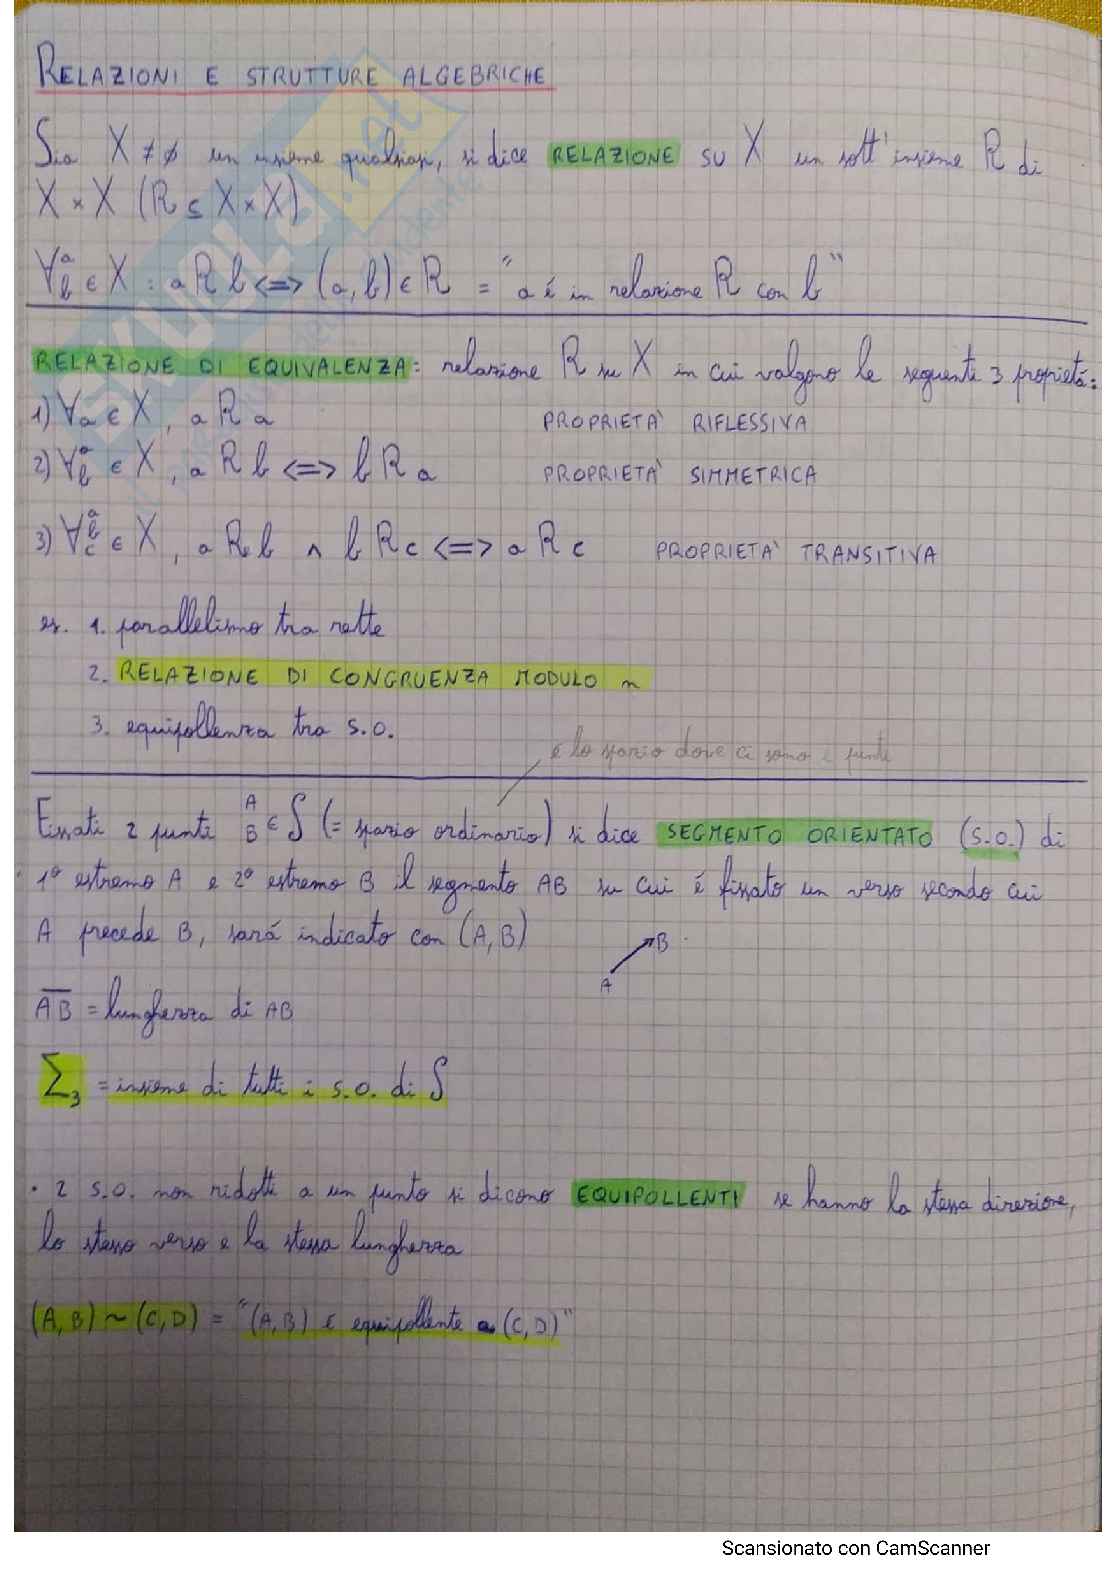 RELAZIONI E STRUTTURE ALGEBRICHE
Sia X ≠ ∅ un insieme qualsiasi, si dice RELAZIONE SU X un sott'insieme R di
X × X (R ⊆ X × X)
∀ a b ∈ X : a R b <=> (a, b) ∈ R = "a é in relazione R con b"
RELAZIONE DI EQUIVALENZA: relazione R su X in cui valgono le seguenti 3 proprietá:
1) ∀ a ∈ X, a R a PROPRIETA' RIFLESSIVA
2) ∀ a b ∈ X, a R b <=> b R a PROPRIETA' SIMMETRICA
3) ∀ a b c ∈ X, a R b ∧ b R c <=> a R c PROPRIETA' TRANSITIVA
es. 1. parallelismo tra rette
2. RELAZIONE DI CONGRUENZA MODULO n
3. equipollenza tra s.o.
é lo spazio dove ci sono i punti
Fissati 2 punti A B ∈ S (= spazio ordinario) si dice SEGMENTO ORIENTATO (s.o.) di
1° estremo A e 2° estremo B il segmento AB su cui é fissato un verso secondo cui
A precede B, sará indicato con (A, B)
A B
AB = lunghezza di AB
Σ3 = insieme di tutti i s.o. di S
• 2 s.o. non ridotti a un punto si dicono EQUIPOLLENTI se hanno la stessa direzione,
lo stesso verso e la stessa lunghezza
(A, B) ~ (C, D) = "(A, B) é equipollente a (C, D)"
Scansionato con CamScanner